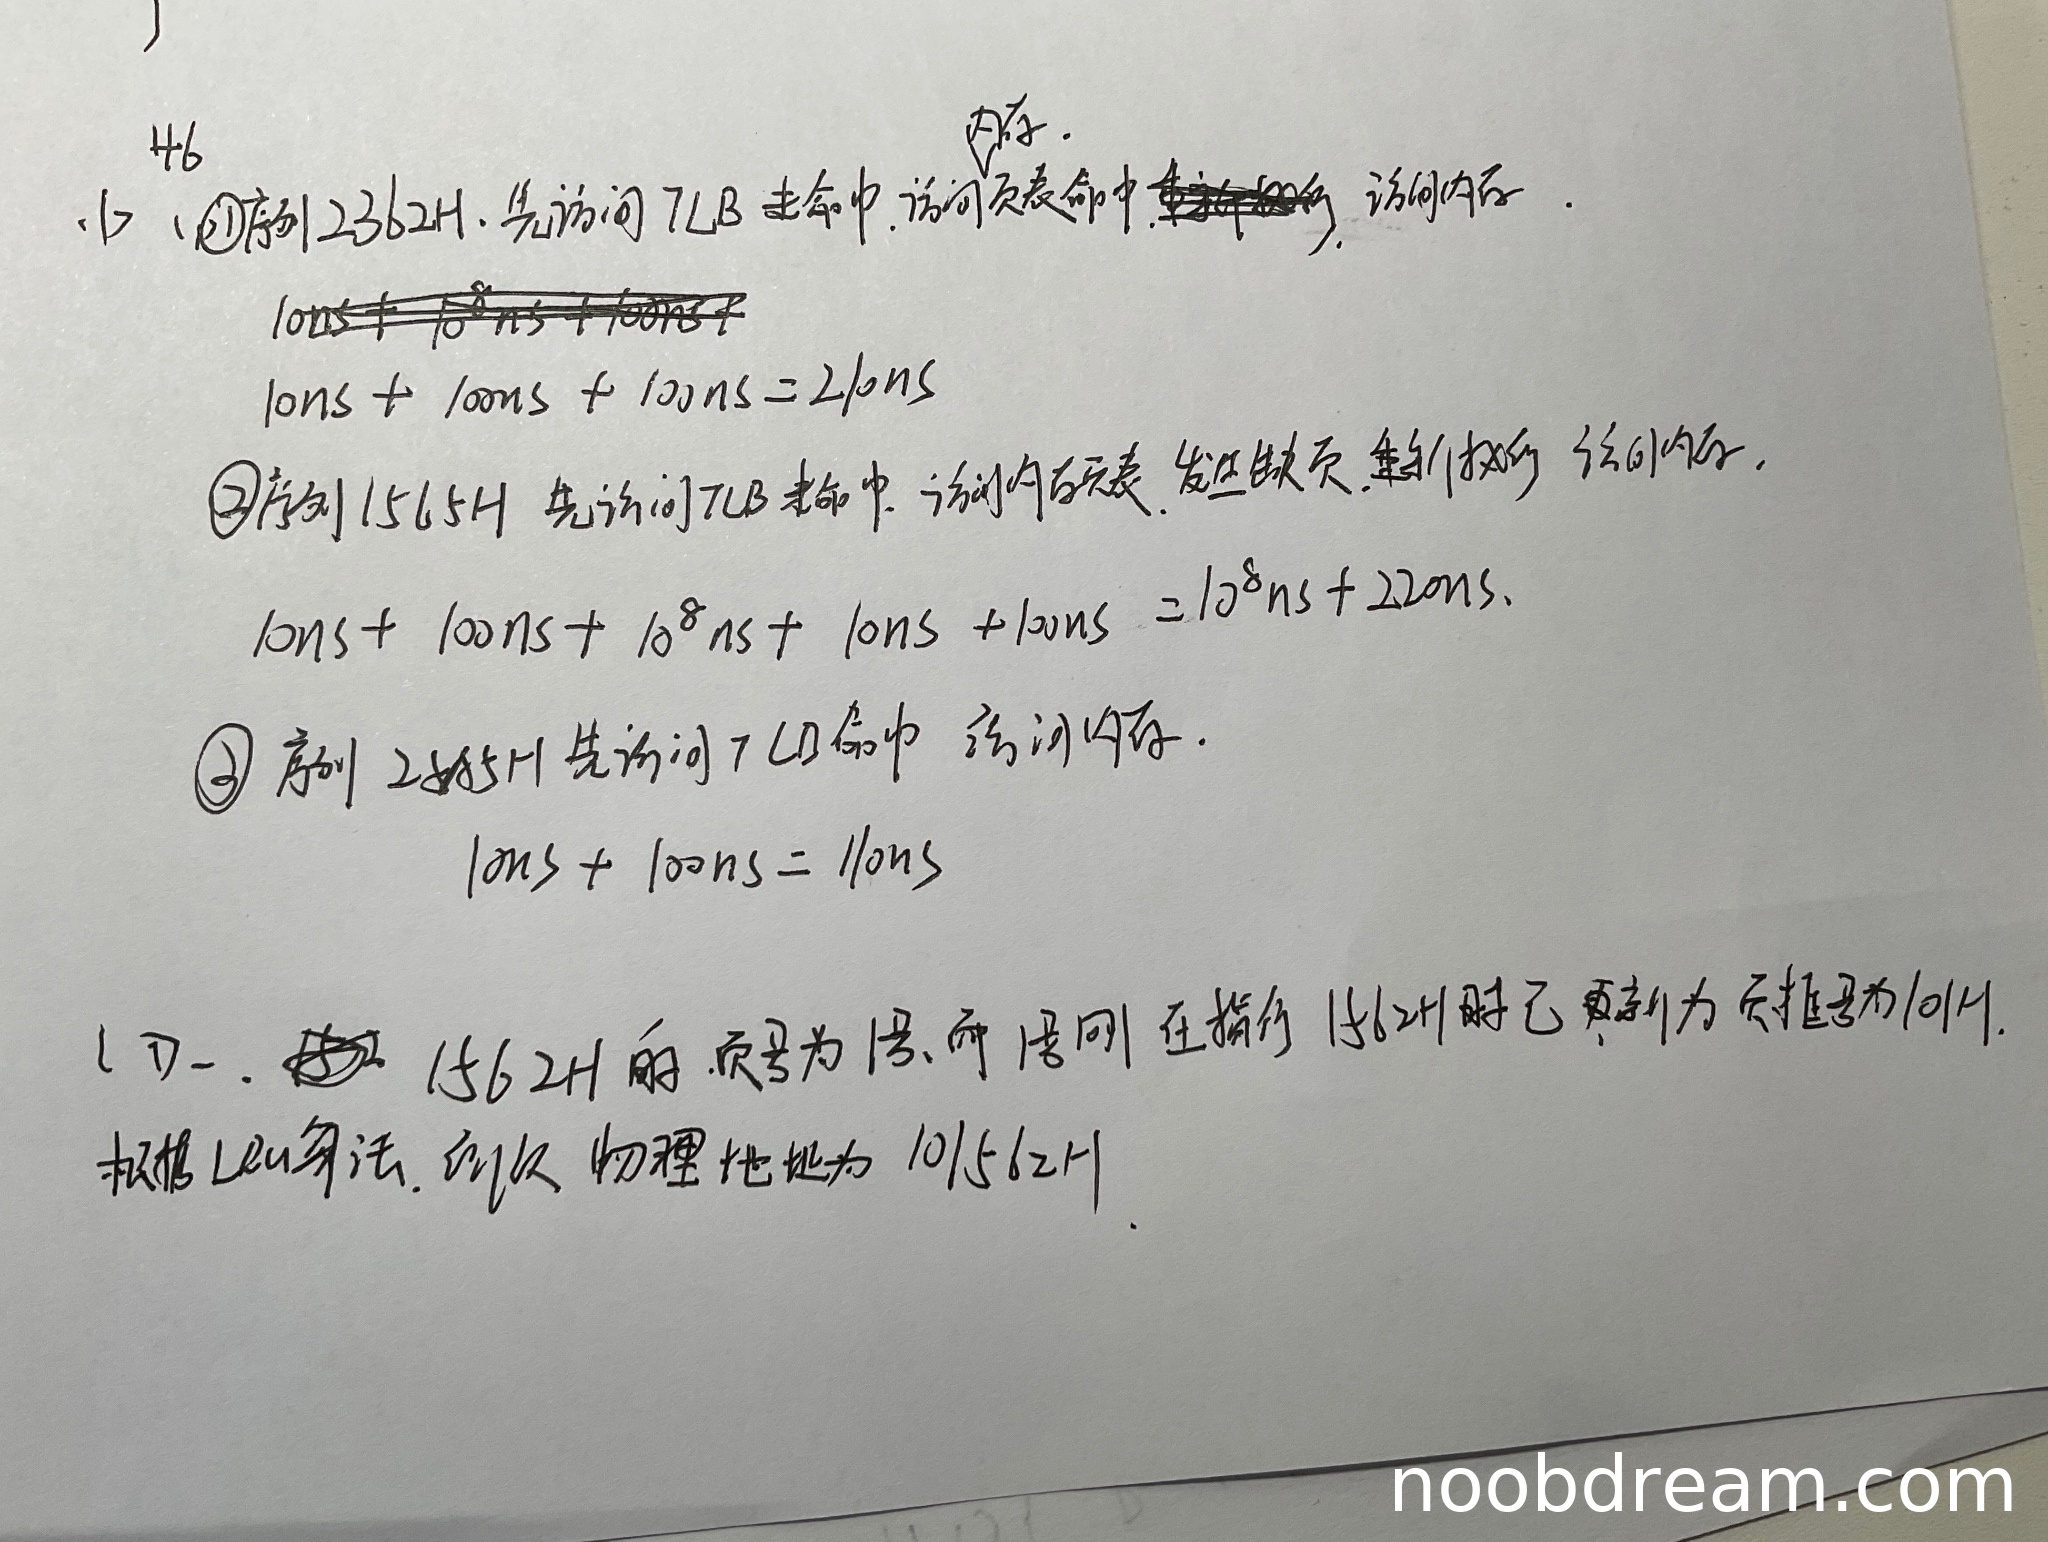 46
内存.
(1)、①序列2362H.先访问TLB未命中.访问页表命中. 访问内存.
10ns + 10⁸ns + 100ns +
10ns + 100ns + 100ns = 210ns
②序列1565H 先访问TLB未命中.访问内存页表.发生缺页.重新执行 访问内存.
10ns + 100ns + 10⁸ns + 10ns + 100ns = 10⁸ns + 220ns.
③ 序列 25A5H 先访问TLB命中 访问内存.
10ns + 100ns = 110ns
1562H的.页号为1号、而1号刚在执行1562H时已更新为页框号为101H.
根据LRU算法. 物理地址为 101562H.
noobdream.com